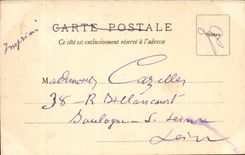 CARTE POSTALE
Ce côté est exclusivement réservé à l'adresse
Imprimé
Mademoiselle Cazelles
38 - R Billancourt
Boulogne - s - Seine
Seine